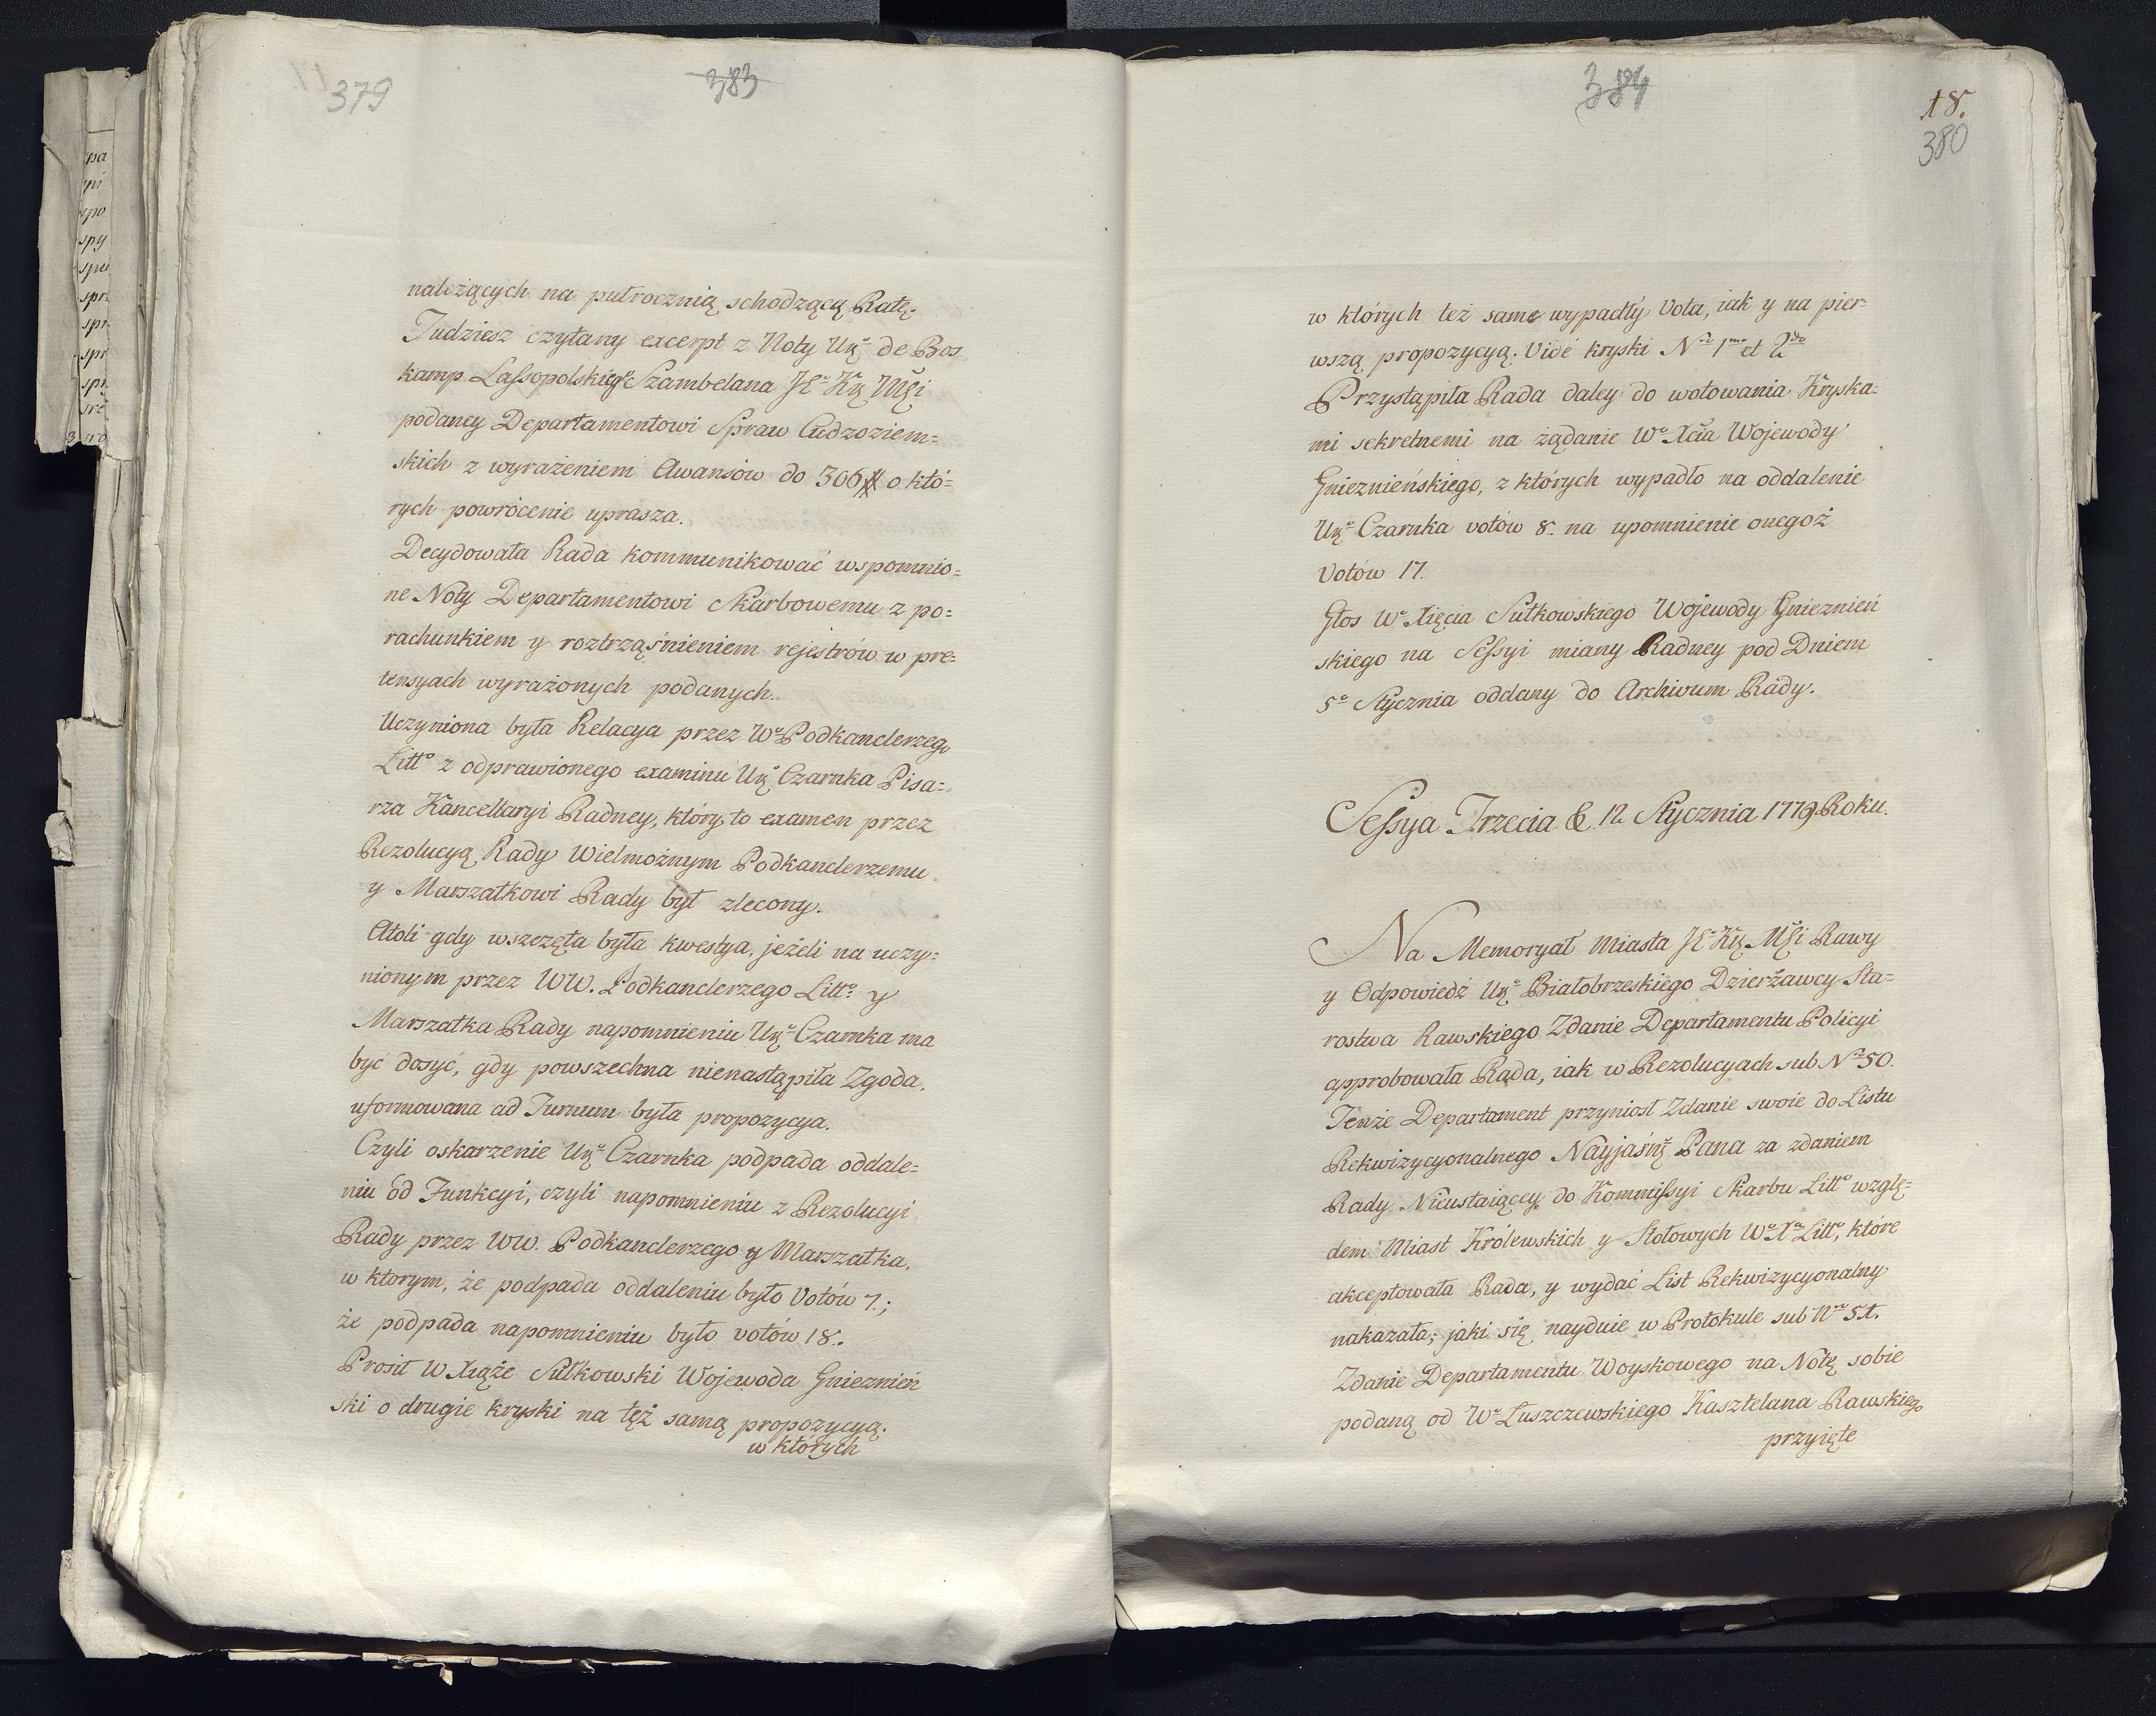 379
383
należących na pułrocznią schodzącą Ratę.
Tudziesz czytany excerpt z Noty Urᵒ de Bos
kamp Lassopolskiegᵒ Szambelana JKᵒ Kŋ Mśʒi
podaney Departamentowi Spraw Cudzoziem=
skich z wyrażeniem Awansów do 306 # o któ=
rych powrócenie uprasza.
Decydowała Rada kommunikować wspomnio=
ne Noty Departamentowi Skarbowemu z po=
rachunkiem y roztrząśnieniem rejestrów w pre=
tensyach wyrażonych podanych.
Uczyniona była Relacya przez Wᵒ Podkanclerzego
Littᵒ z odprawionego examinu Urᵒ Czarnka Pisa=
rza Kancellaryi Radney, który to examen przez
Rezolucyą Rady Wielmożnym Podkanclerzemu
y Marszałkowi Rady był zlecony.
Atoli gdy wszczęta była kwestya, jeżeli na uczy=
nionym przez WW. Podkanclerzego Littᵒ: y
Marszałka Rady napomnieniu Urᵒ Czarnka ma
być dosyć, gdy powszechna nienastąpiła Zgoda,
uformowana ad Turnum była propozycya.
Czyli oskarzenie Urᵒ Czarnka podpada oddale=
niu od Funkcyi, czyli napomnieniu z Rezolucyi
Rady przez WW. Podkanclerzego y Marszałka,
w ktorym, że podpada oddaleniu było Votów 7.;
że podpada napomnieniu było votów 18.
Prosił W Xiąże Sułkowski Wojewoda Gnieznień
ski o drugie kryski na tęż samą propozycyą.
w których
384
18.
380
w których też same wypadły Vota, iak y na pier=
wszą propozycyą. Vide kryski Nʳᵒ 1ᵐᵒ et 2ᵈᵒ
Przystąpiła Rada daley do wotowania Kryska=
mi sekretnemi na żądanie Wᵒ Xcia Wojewody
Gnieznieńskiego, z których wypadło na oddalenie
Urᵒ Czarnka votów 8. na upomnienie onegoż
Votów 17.
Głos Wᵒ Xięcia Sułkowskiego Wojewody Gnieznień
skiego na Sessyi miany Radney pod Dniem
5ᵒ Stycznia oddany do Archiwum Rady.
Sessya Trzecia D. 12 Stycznia 1779 Roku.
Na Memoryał Miasta JKᵒ Kŋ Mśʒi Rawy
y Odpowiedź Urᵒ Białobrzeskiego Dzierżawcy Sta=
rostwa Rawskiego Zdanie Departamentu Policyi
approbowała Rada, iak w Rezolucyach sub Nʳᵒ 50.
Tenże Departament przyniosł Zdanie swoie do Listu
Rekwizycyonalnego Nayjaśnᵒ Pana za zdaniem
Rady Nieustaiącey do Kommissyi Skarbu Littᵒ wzglę=
dem Miast Królewskich y Stołowych Wᵒ Xᵃ Littᵒ, które
akceptowała Rada, y wydać List Rekwizycyonalny
nakazała; jaki się nayduie w Protokule sub Nʳᵒ 51.
Zdanie Departamentu Woyskowego na Notę sobie
podaną od Wᵒ Łuszczewskiego Kasztelana Rawskiego
przyięte